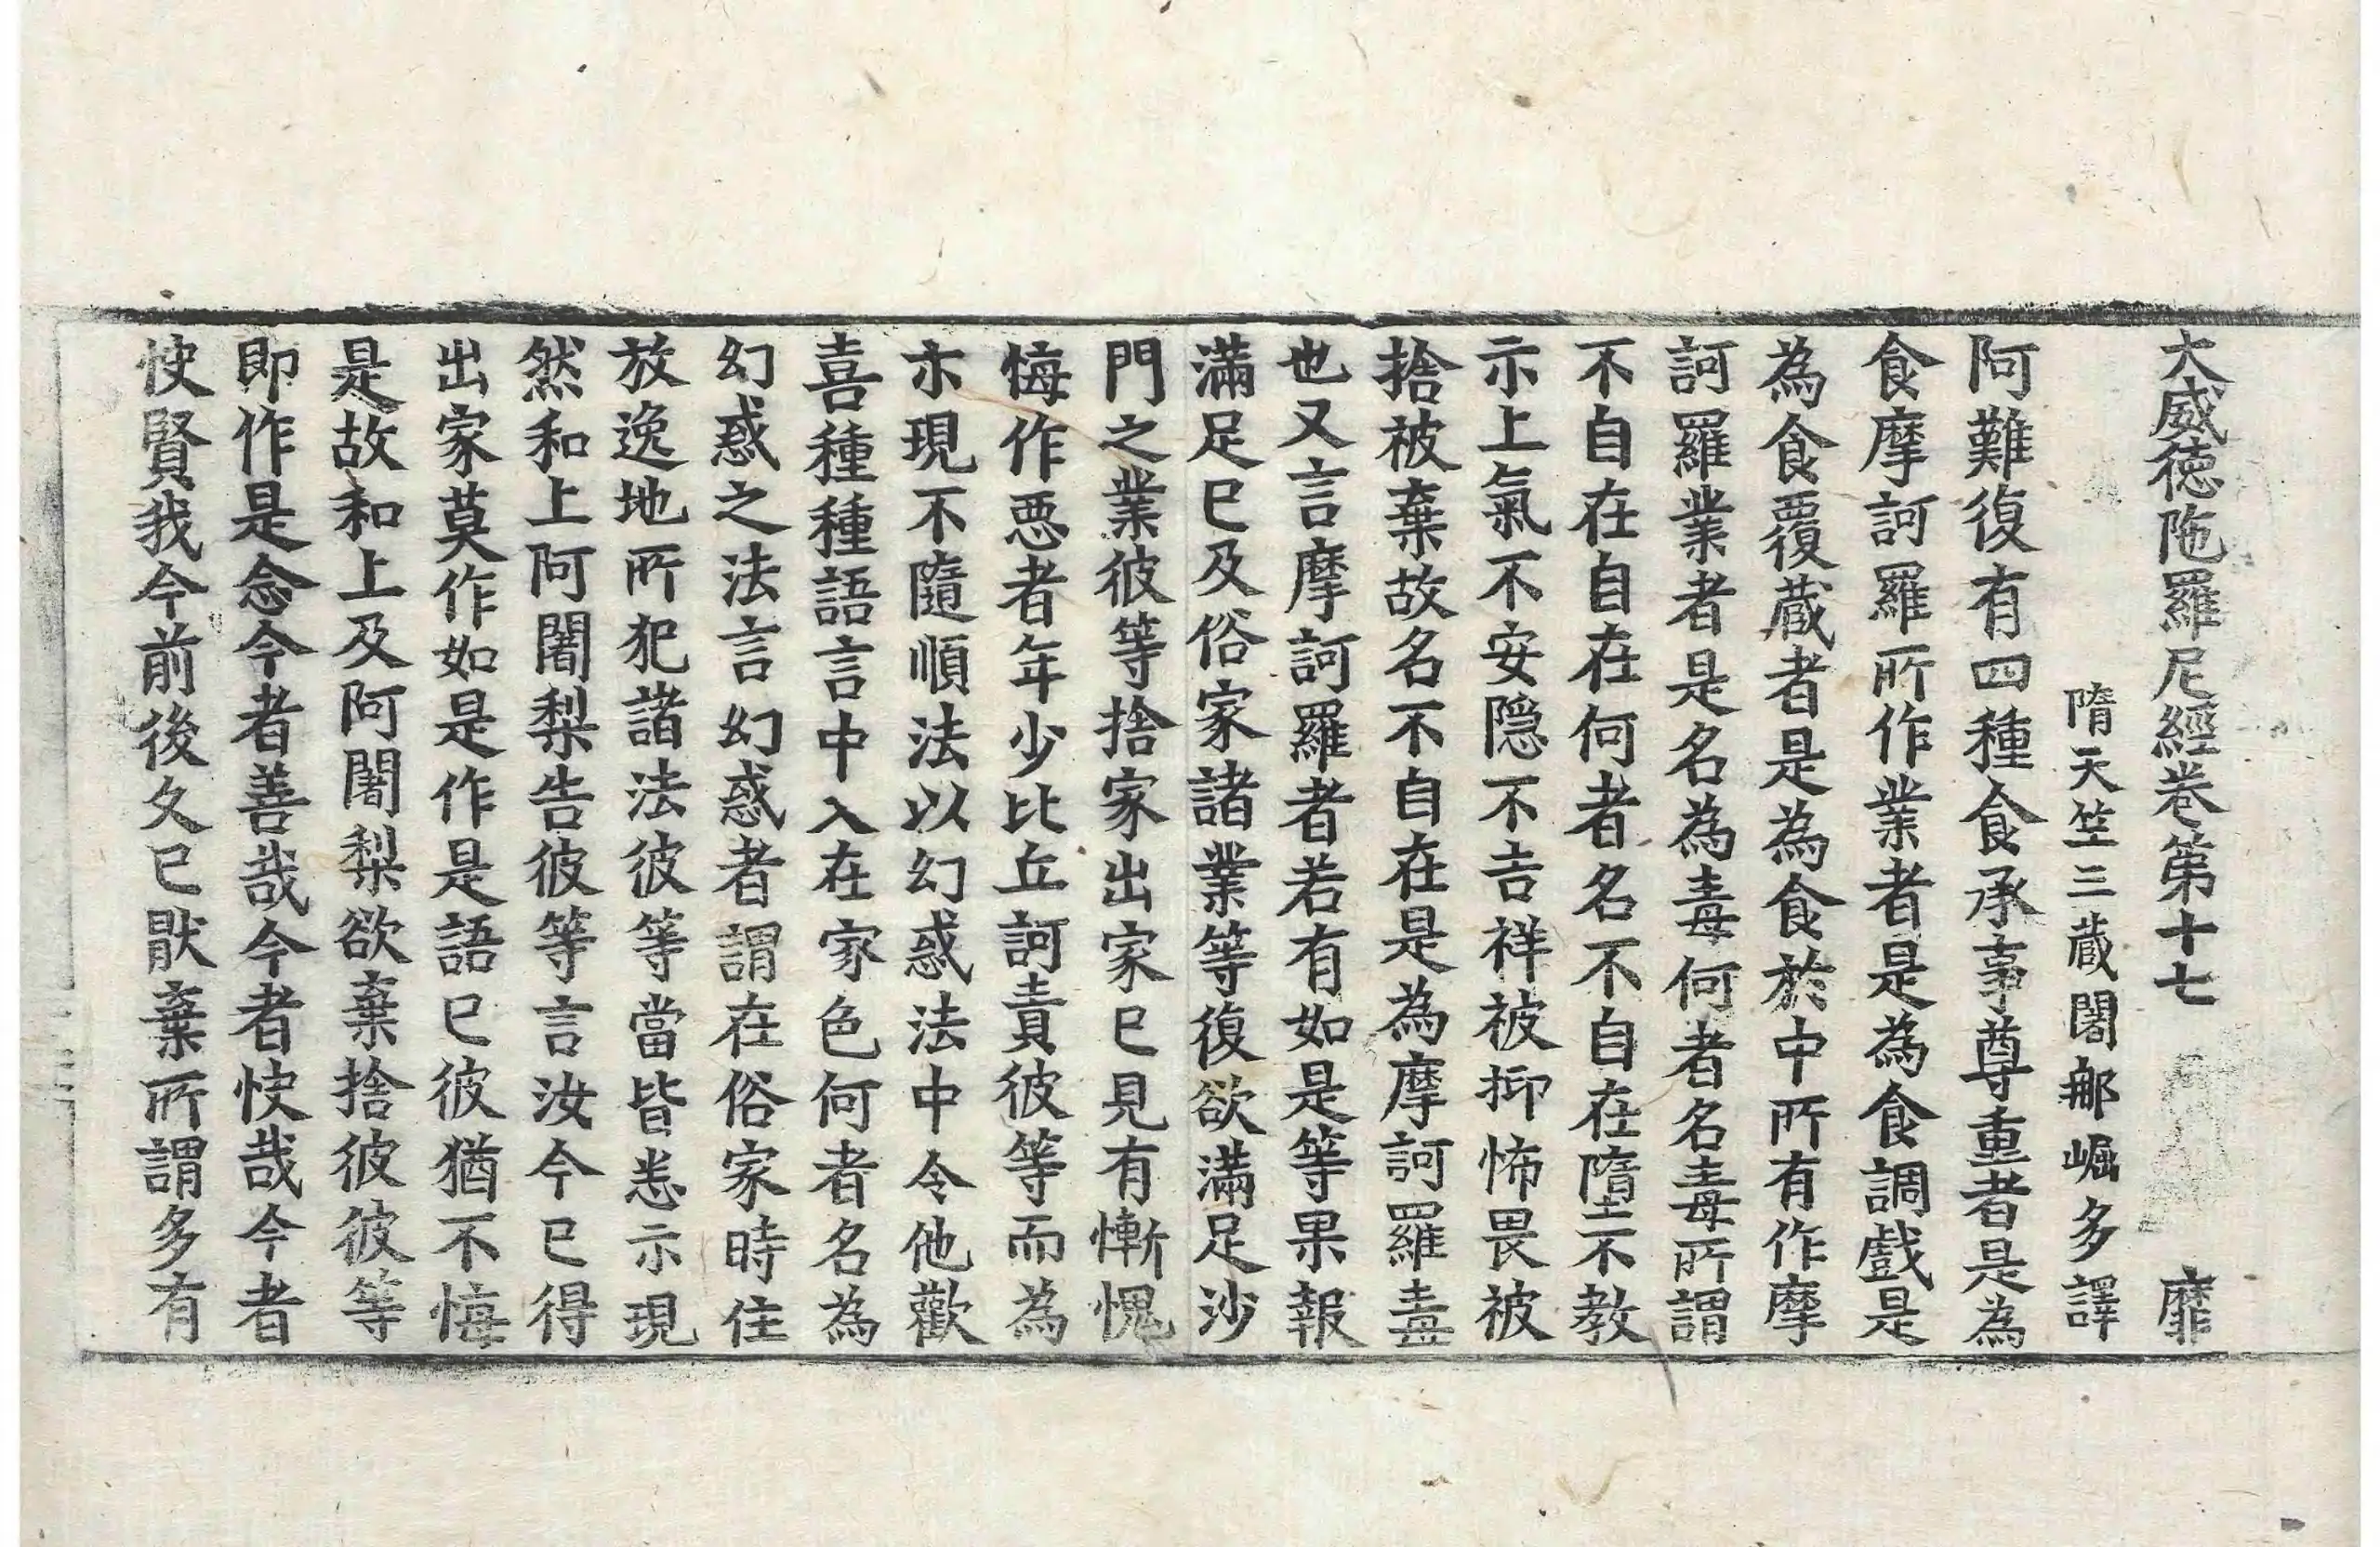 大威徳陁羅尼經卷第十七 靡
隋天竺三蔵闍郍崛多譯
阿難復有四種食承事尊重者是為
食摩訶羅所作業者是為食調戲是
為食覆蔵者是為食於中所有作摩
訶羅業者是名為毒何者名毒所謂
不自在自在何者名不自在墮不教
示上氣不安隠不吉祥被抑怖畏被
捨被棄故名不自在是為摩訶羅毒
也又言摩訶羅者若有如是等果報
滿足已及俗家諸業等復欲滿足沙
門之業彼等捨家出家已見有慚愧
悔作恶者年少比丘訶責彼等而為
亦現不隨順法以幻惑法中令他歡
喜種種語言中入在家色何者名為
幻惑之法言幻惑者謂在俗家時住
放逸地所犯諸法彼等當皆悉示現
然和上阿闍梨告彼等言汝今已得
出家莫作如是作是語已彼猶不悔
是故和上及阿闍梨欲棄捨彼彼等
即作是念今者善哉今者快哉今者
快賢我今前後久已猒棄所謂多有